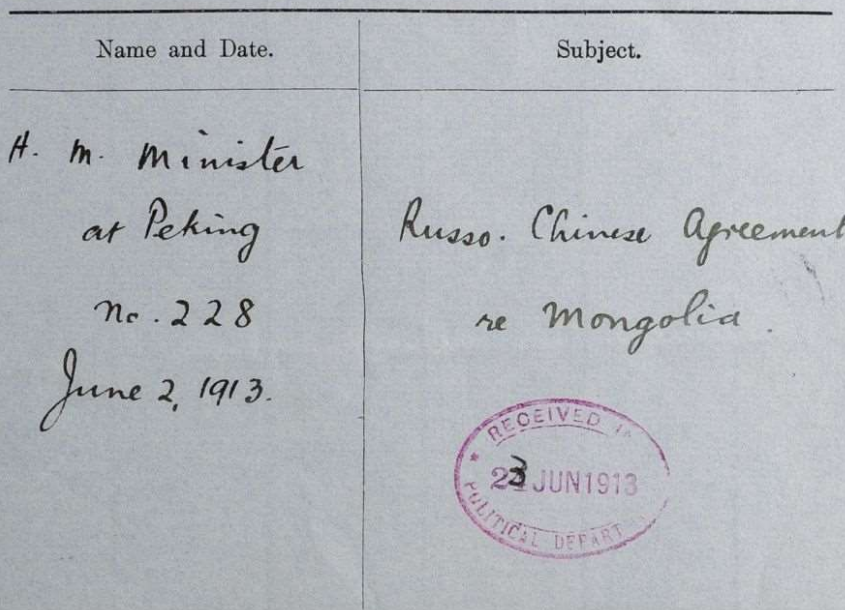 Name and Date.
Subject.
H. M. Minister
at Peking
No. 228
June 2, 1913.
Russo. Chinese Agreement
re Mongolia.
* RECEIVED IN
23 JUN 1913
POLITICAL DEPART